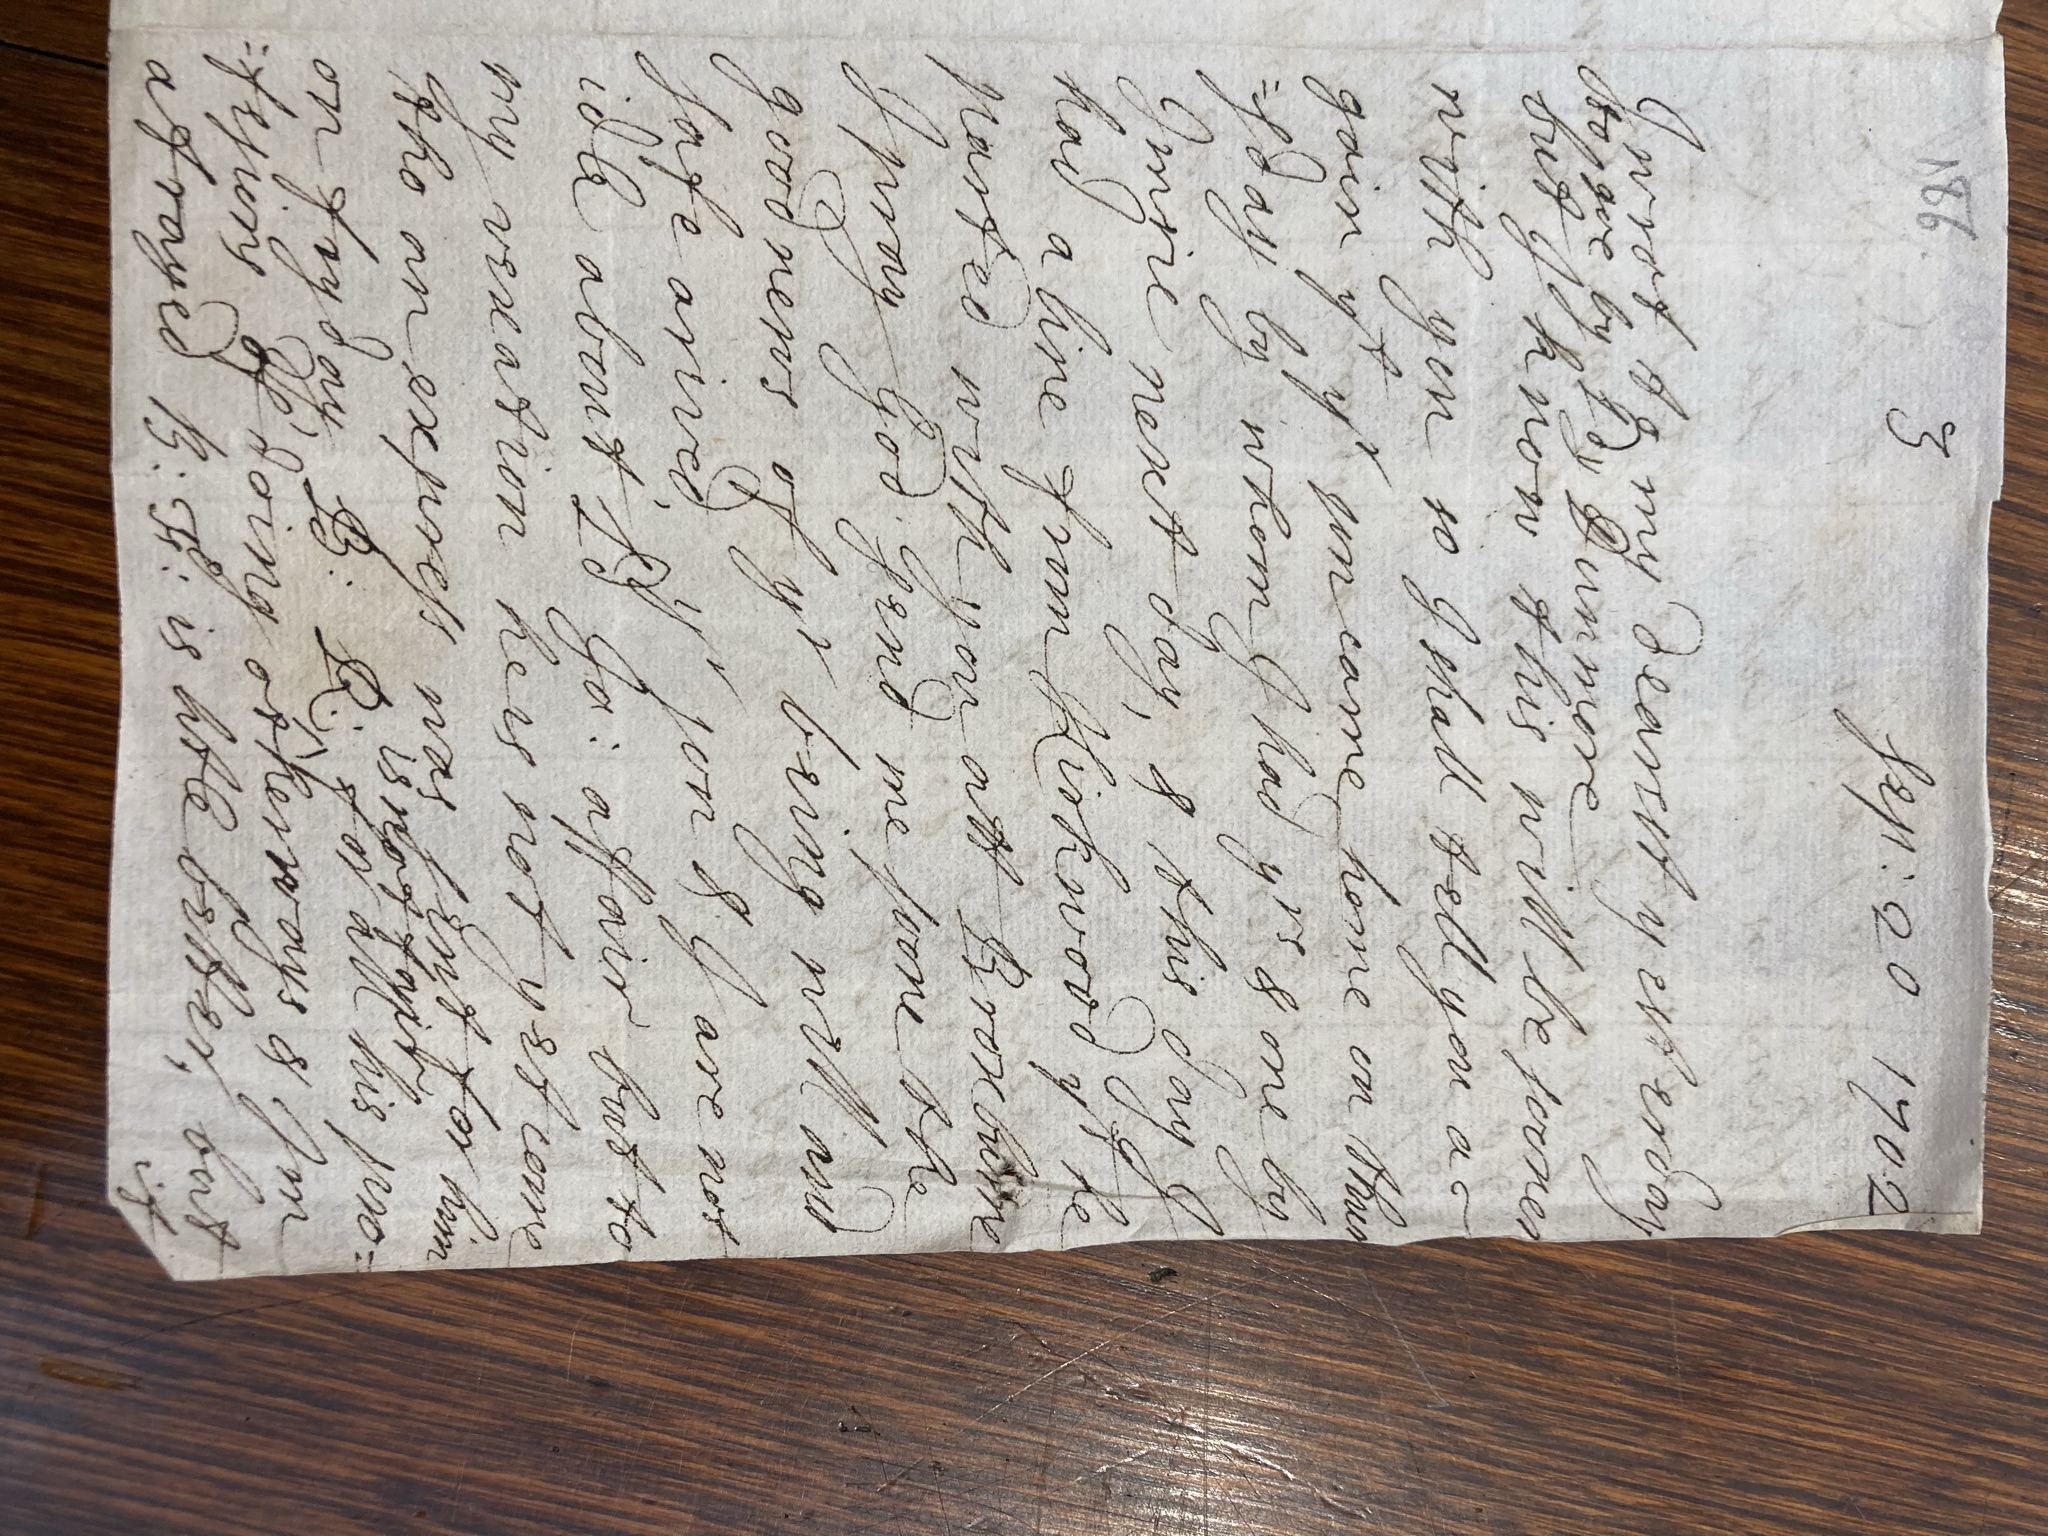 186.
3 Sep: 20 1702
I wrot to my dearest yesterday
to goe by Ldy Dunmore
but I know this will be sooner
with you so I shall tell you a-
gain yt yr son came home on thur
=sday by whom I had yrs & one by
Imrie next day, & this day I
had a line from Kirkwood yt he
parted with you att Broxburne
I pray God send me soone the
good news of yr being well and
safe arived, yr son & I are not
idle about Ld Ja: affair but to
my vexation he is not yet come
tho an express was sent for him
is not fair
on fryday, B: R: ^ for all his pro=
=fesions of doing otherways & Im
afrayed B: F: is litle better, but
if